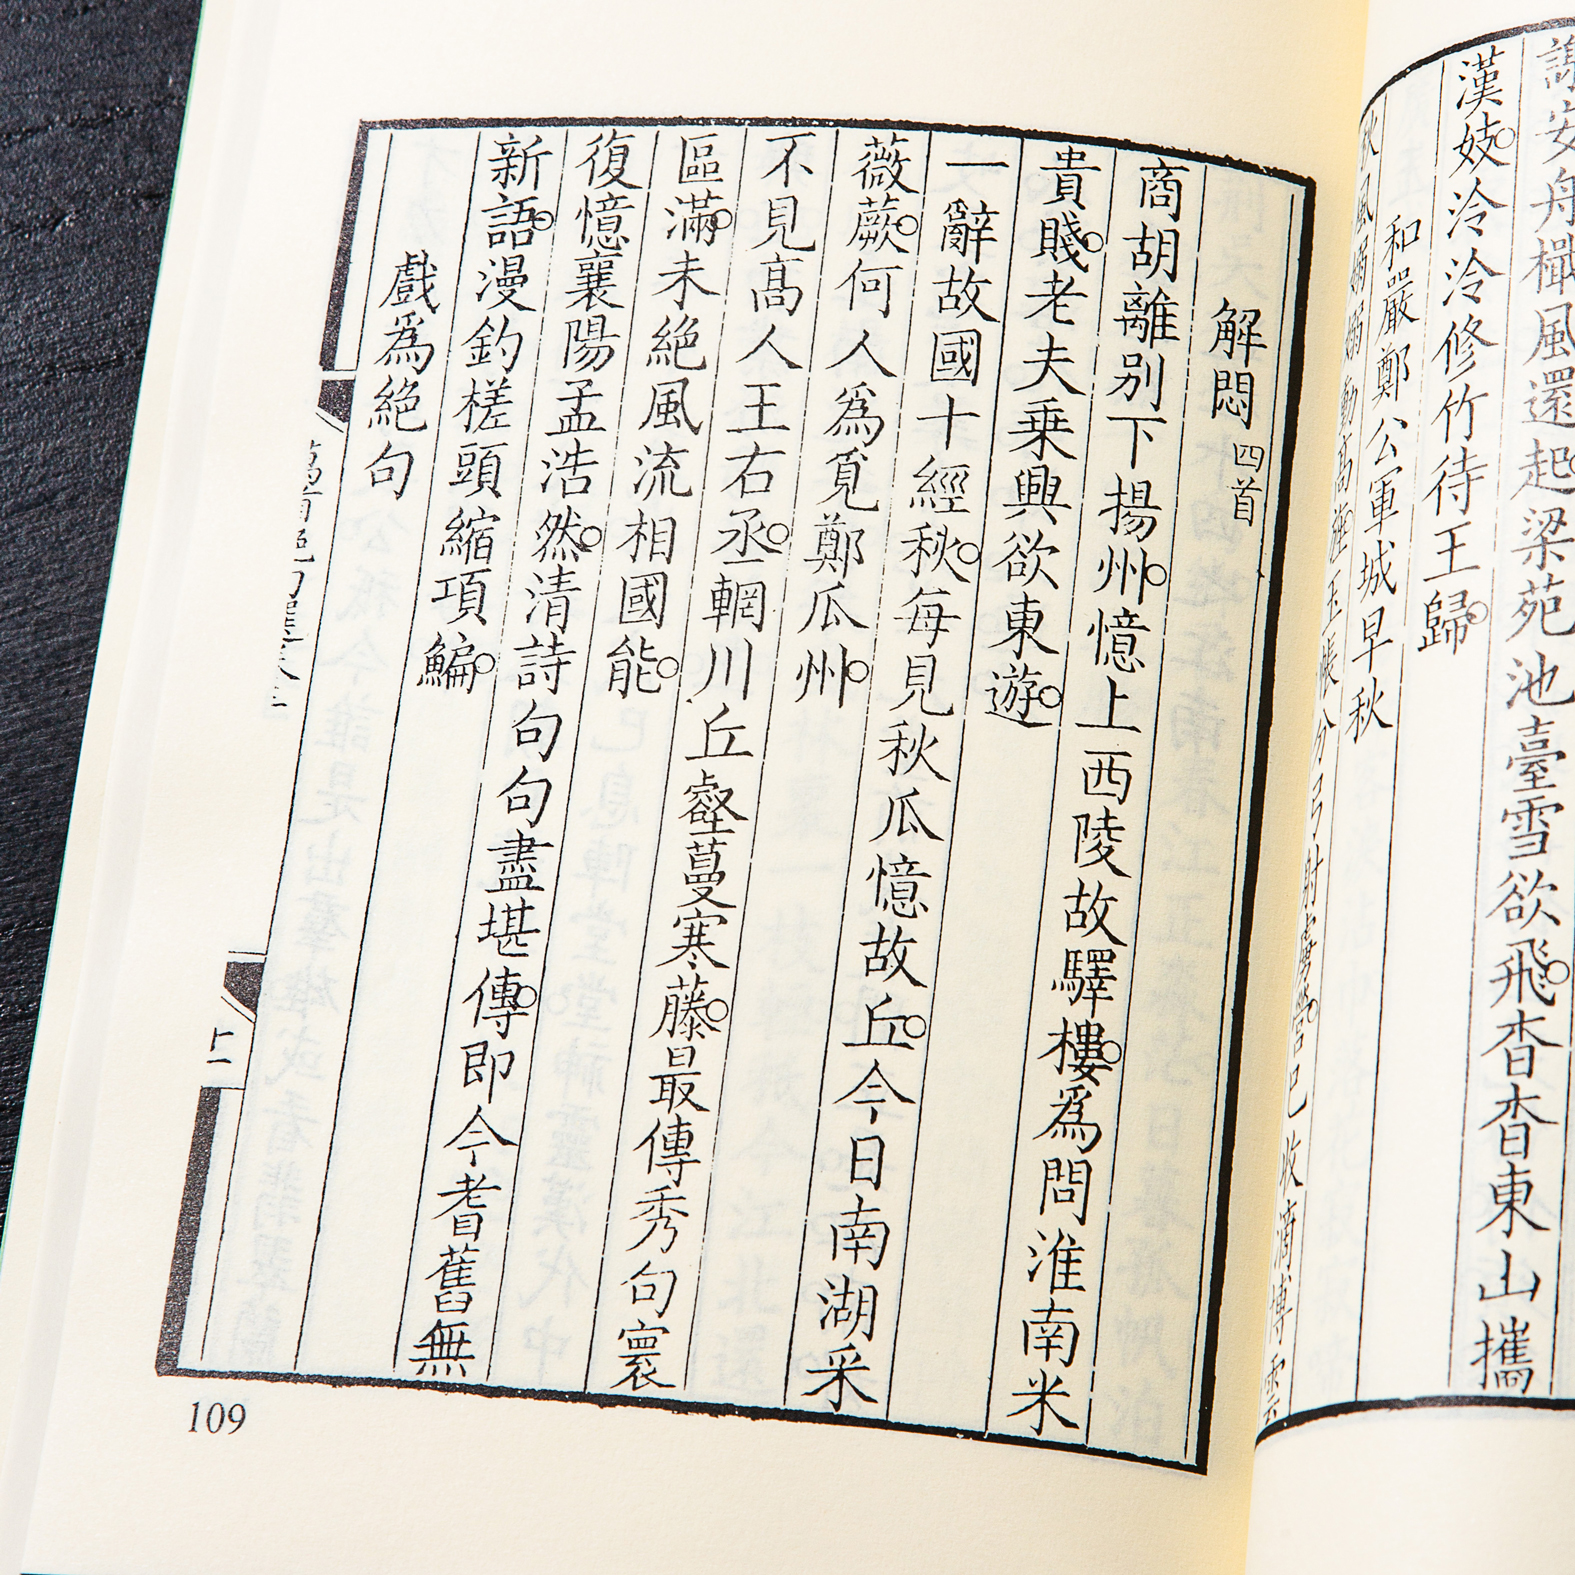 謝安舟檝風還起。梁苑池臺雪欲飛。杳杳東山攜
漢妓。泠泠修竹待王歸。
和嚴鄭公軍城早秋
秋風嫋嫋動高旌。玉帳分弓射虜營。已收滴博雲
解悶四首
商胡離別下揚州。憶上西陵故驛樓。爲問淮南米
貴賤。老夫乗興欲東遊。
一辭故國十經秋。每見秋瓜憶故丘。今日南湖采
薇蕨。何人爲覓鄭瓜州。
不見髙人王右丞。輞川丘壑蔓寒藤。最傳秀句寰
區滿。未絶風流相國能。
復憶襄陽孟浩然。清詩句句盡堪傳。即今耆舊無
新語。漫釣槎頭縮項鯿。
戲爲絶句
十一
109